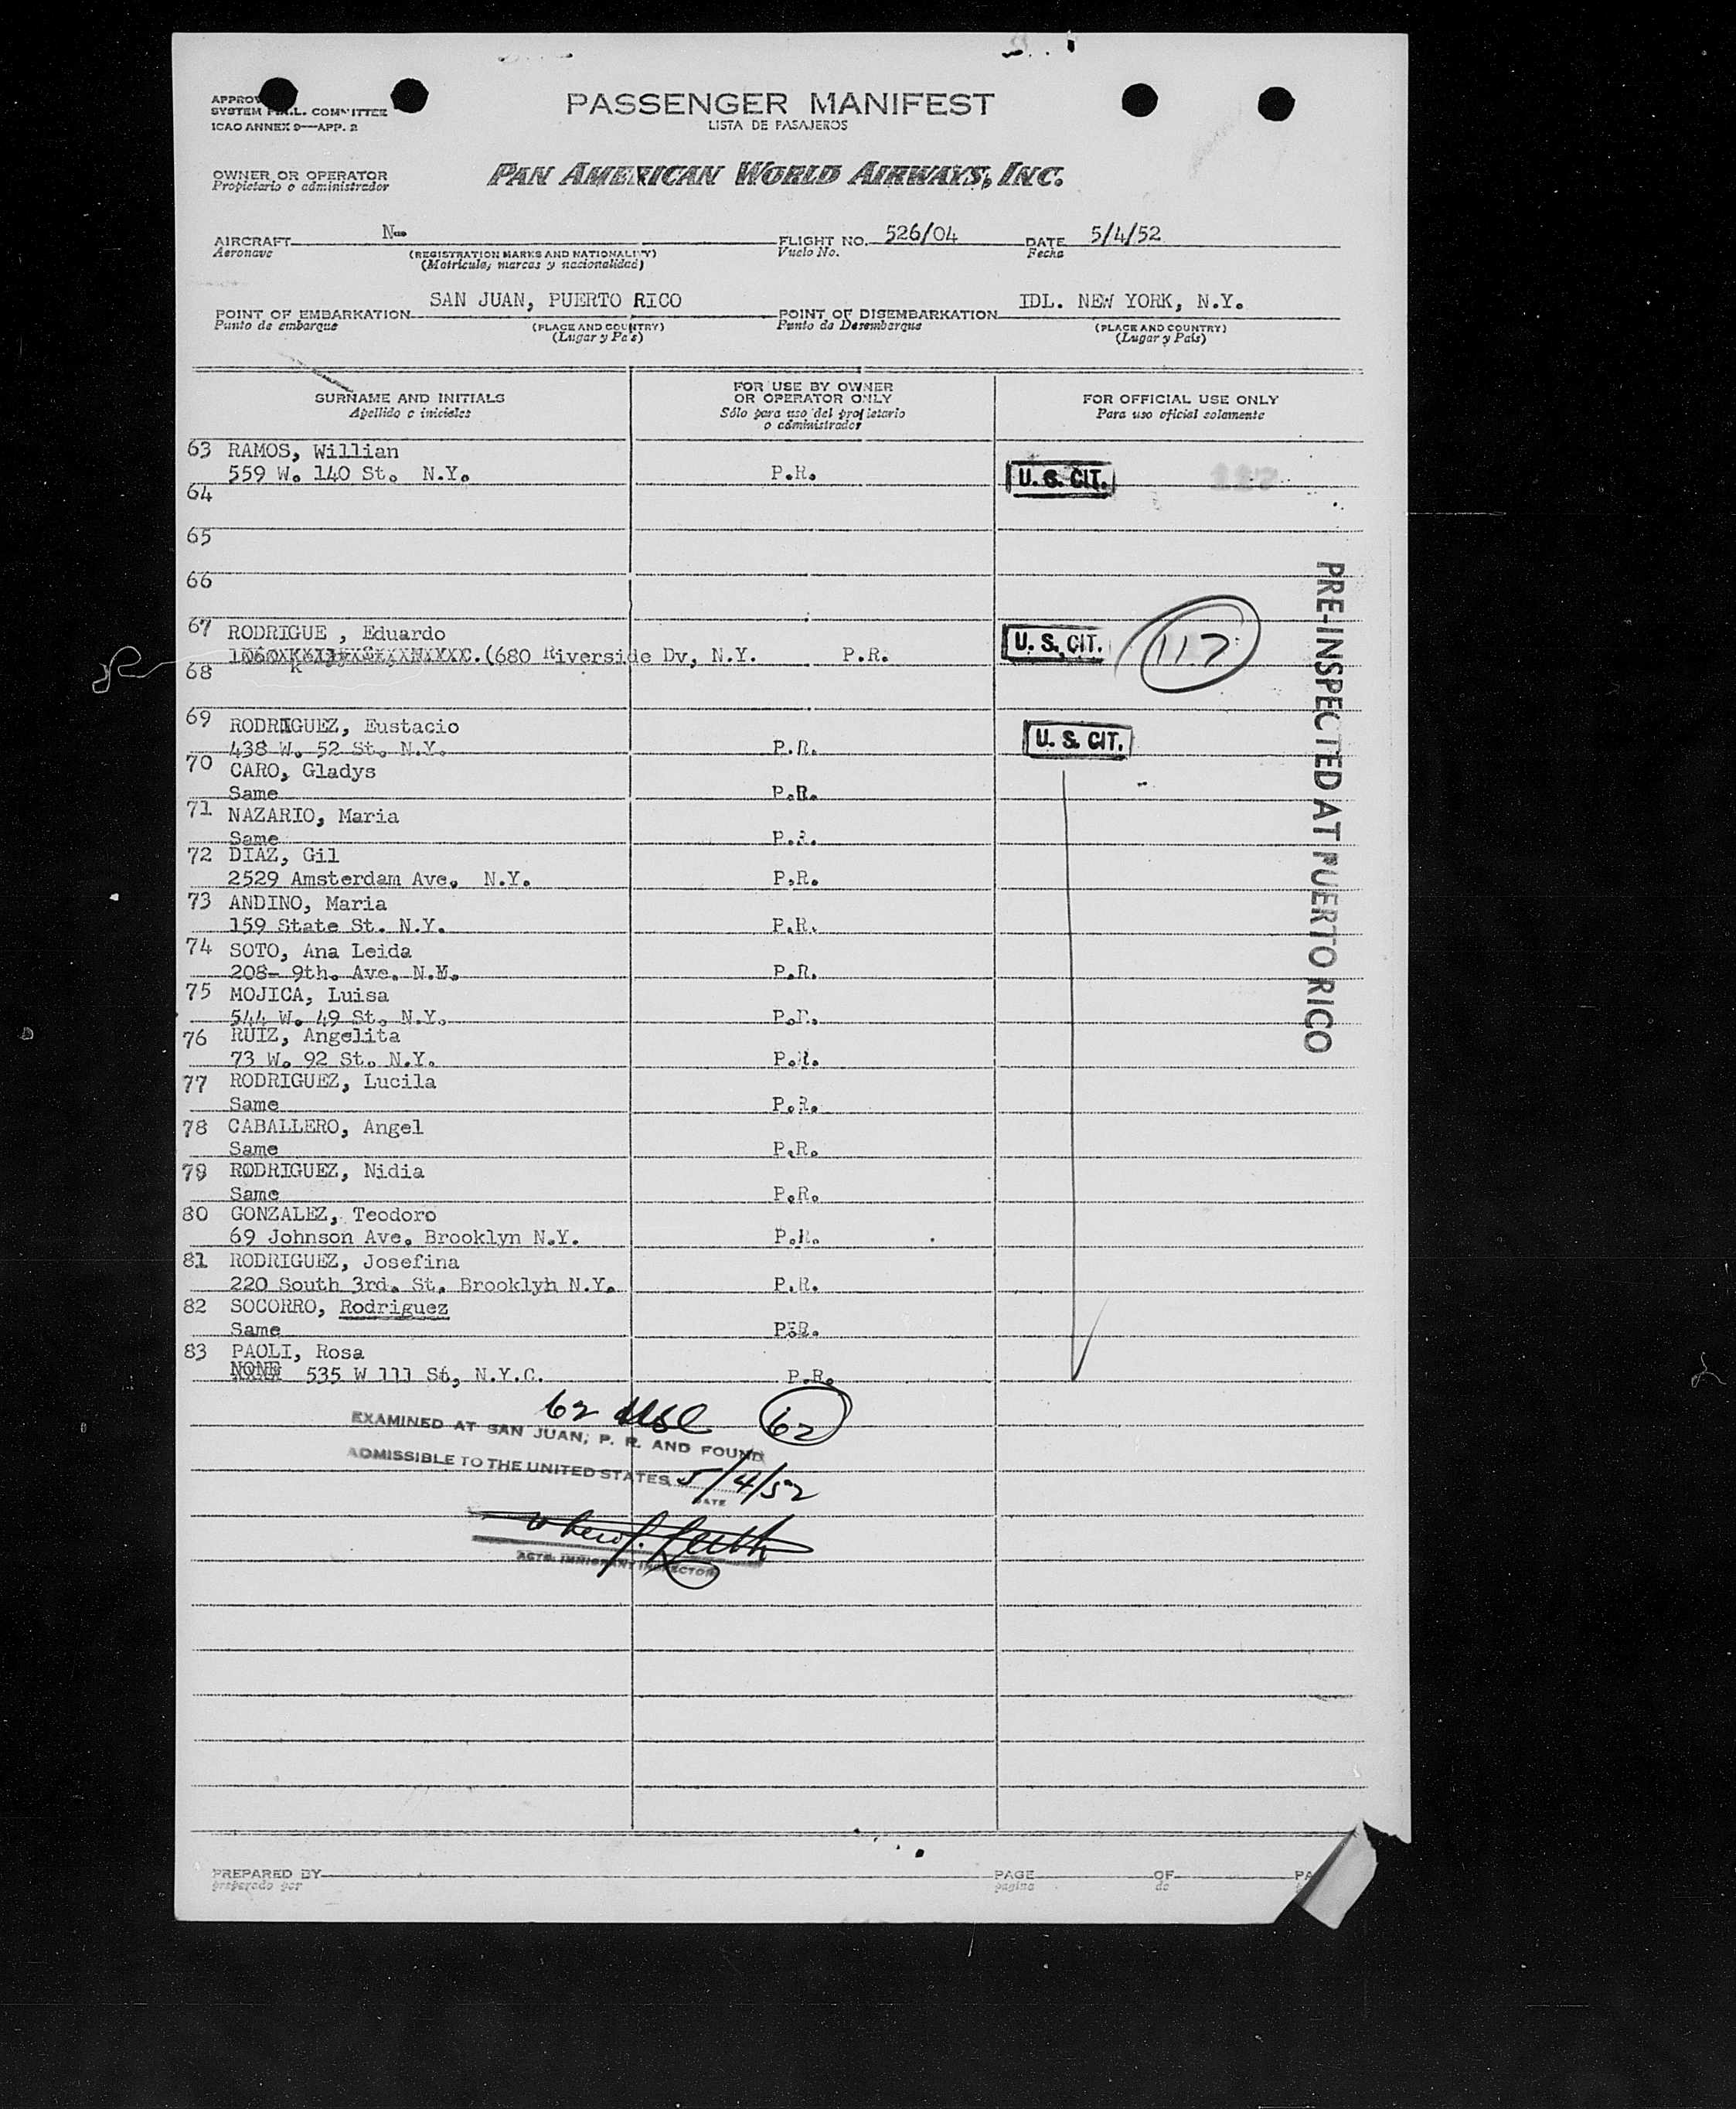 PASSENGER MANIFEST
LISTA DE PASAJEROS
SYSTEM COMMITTEE
ICAO ANNEX 9—APP. 2
OWNER OR OPERATOR
Propietario o administrador
PAN AMERICAN WORLD AIRWAYS, INC.
AIRCRAFT N-
Aeronave
(REGISTRATION MARKS AND NATIONALITY)
(Matricula, marcas y nacionalidad)
FLIGHT NO. 526/04
Vuelo No.
DATE 5/4/52
Fecha
POINT OF EMBARKATION SAN JUAN, PUERTO RICO
Punto de embarque
(PLACE AND COUNTRY)
(Lugar y País)
POINT OF DISEMBARKATION IDL. NEW YORK, N.Y.
Punto de Desembarque
(PLACE AND COUNTRY)
(Lugar y País)
SURNAME AND INITIALS
Apellido e iniciales
FOR USE BY OWNER
OR OPERATOR ONLY
Sólo para uso del propietario
o administrador
FOR OFFICIAL USE ONLY
Para uso oficial solamente
63 RAMOS, Willian
559 W. 140 St. N.Y. P.R. U. S. CIT. 117
64
65
66
67 RODRIGUE , Eduardo
(680 Riverside Dv, N.Y. P.R. U. S. CIT. 117
68
69 RODRIGUEZ, Eustacio
438 W. 52 St. N.Y. P.R. U. S. CIT.
70 CARO, Gladys
Same P.R.
71 NAZARIO, Maria
Same P.R.
72 DIAZ, Gil
2529 Amsterdam Ave. N.Y. P.R.
73 ANDINO, Maria
159 State St. N.Y. P.R.
74 SOTO, Ana Leida
208- 9th. Ave. N.Y. P.R.
75 MOJICA, Luisa
544 W. 49 St. N.Y. P.R.
76 RUIZ, Angelita
73 W. 92 St. N.Y. P.R.
77 RODRIGUEZ, Lucila
Same P.R.
78 CABALLERO, Angel
Same P.R.
79 RODRIGUEZ, Nidia
Same P.R.
80 GONZALEZ, Teodoro
69 Johnson Ave. Brooklyn N.Y. P.R.
81 RODRIGUEZ, Josefina
220 South 3rd. St. Brooklyh N.Y. P.R.
82 SOCORRO, Rodriguez
Same P.R.
83 PAOLI, Rosa
NONE 535 W 111 St, N.Y.C. P.R.
PRE-INSPECTED AT PUERTO RICO
62 USC 62
EXAMINED AT SAN JUAN, P. R. AND FOUND
ADMISSIBLE TO THE UNITED STATES 5/4/52
DATE
ACTG. IMMIGRANT INSPECTOR
PREPARED BY
preparado por
PAGE
pagina
OF
de